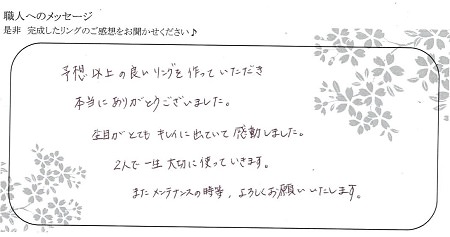 職人へのメッセージ
是非 完成したリングのご感想をお聞かせください♪
予想以上の良いリングを作っていただき
本当にありがとうございました。
杢目がとてもキレイに出ていて感動しました。
2人で一生大切に使っていきます。
またメンテナンスの時等、よろしくお願いいたします。